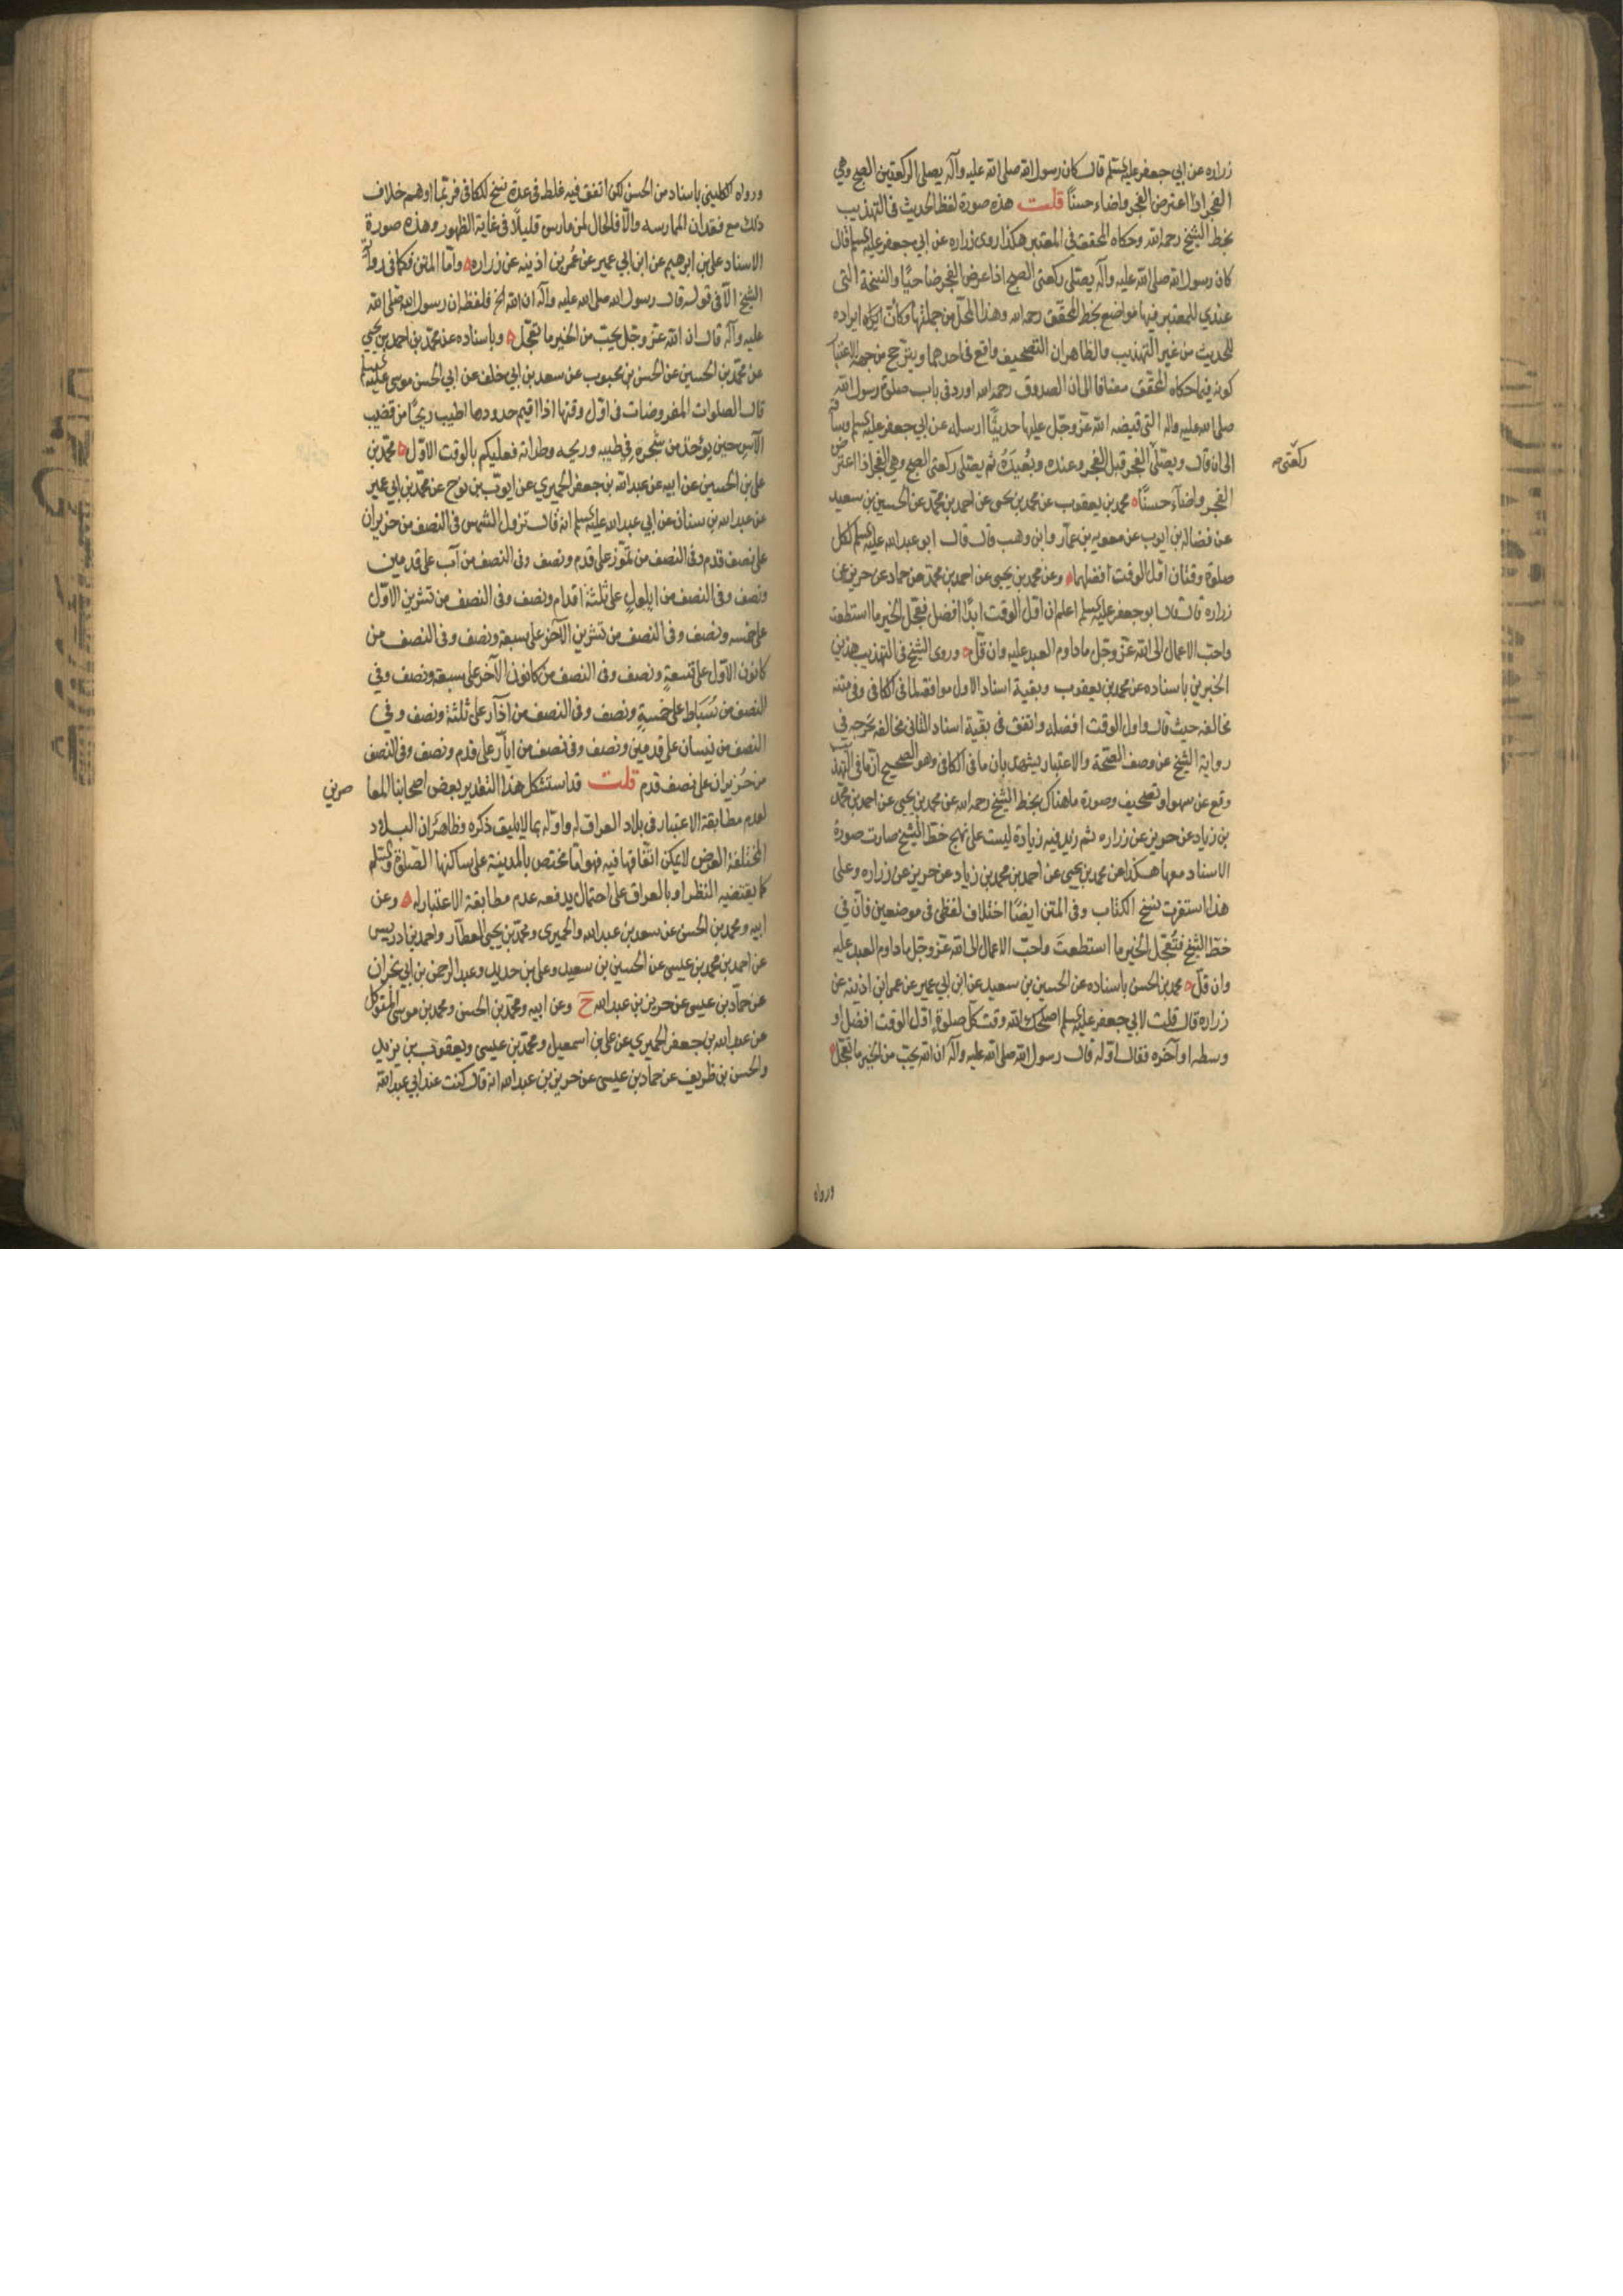 زراره عن ابي جعفر عليه السلم قال كان رسول الله صلى الله عليه وآله يصلى الركعتين الصبح وهي
الفجر اذا اعترض الفجر واضاء حسنًا قلت هذه صورة لفظ الحديث فى التهذيب
بخط الشيخ رحمه الله وحكاه المحقق في المعتبر هكذا روى زراره عن ابي جعفر عليه السلم قال
كان رسول الله صلى الله عليه وآله يصلى ركعتى الصبح اذا عرض الفجر ضاحيًا والنسخة التى
عندي للمعتبر فيها مواضع بخط المحقق رحمه الله وهذا المحلّ من جملتها وكأنّ ايراده
للحديث من غير التهذيب والظاهر ان التصحيف واقع فى احدهما ويترجح من جهة الاعتبار
كونه فيما حكاه المحقق مضافا الى ان الصدوق رحمه الله اورد فى باب صلوة رسول الله
صلى الله عليه واله التى قبضه الله عزّ وجلّ عليها حديثًا ارسله عن ابي جعفر عليه السلم وساقه
الى ان قال ويصلّى الفجر قبل الفجر وعنده وبُعيدَهُ ثم يصلى ركعتى الصبح وهي الفجر اذا اعترض
ركعتى
الفجر واضآء حسنًا محمد بن يعقوب عن محمد بن يحيى عن احمد بن محمد عن الحسين بن سعيد
عن فضاله بن ايوب عن معويه بن عمار وابن وهب قال قال ابو عبد الله عليه السلم لكل
صلوة وقتان اوّل الوقت افضلهما وعن محمد بن يحيى عن احمد بن محمد عن حماد عن حريز عن
زراره قال قال ابو جعفر عليه السلم اعلم ان اوّل الوقت ابدًا افضل فعجّل الخير ما استطعت
واحبّ الاعمال الى الله عزّ وجلّ ما داوم العبد عليه وان قلّ وروى الشيخ فى التهذيب هذين
الخبرين باسناده عن محمد بن يعقوب وبقية اسناد الاول موافقة لما فى الكافى وفى متنه
مخالفة حيث قال واول الوقت افضله واتفق فى بقية اسناد الثانى مخالفة تخرجه فى
رواية الشيخ عن وصف الصحّة والاعتبار يشهد بان ما فى الكافى وهو الصحيح انّ ما فى التهذيب
وقع عن سهو او تصحيف وصورة ما هناك بخط الشيخ رحمه الله عن محمد بن يحيى عن احمد بن محمد
بن زياد عن حريز عن زراره ثم زيد فيه زيادة ليست على نهج خطّ الشيخ صارت صورة
الاسناد معها هكذا عن محمد بن يحيى عن احمد بن محمد بن زياد عن حريز عن زراره وعلى
هذا استقرت نسخ الكتاب وفى المتن ايضًا اختلاف لفظى فى موضعين فانّ فى
خطّ الشيخ فتُعجّل الخير ما استطعتَ واحبّ الاعمال الى الله عزّ وجلّ ما داوم العبد عليه
وان قلّ محمد بن الحسن باسناده عن الحسين بن سعيد عن ابن ابي عمير عن عمر ابن اذينه عن
زراره قال قلت لابي جعفر عليه السلم اصلحك الله وقت كل صلوة اوّل الوقت افضل او
وسطه او آخره فقال اوّله قال رسول الله صلى الله عليه وآله ان الله يحبّ من الخير ما تعجّل
ورواه
ورواه الكلينى باسناد من الحسن لكن اتفق فيه غلط فى عدة نسخ للكافى فربّما اوهم خلاف
ذلك مع فقدان الممارسه والّا فالحال لمن مارس قليلًا فى غاية الظهور وهذه صورة
الاسناد على بن ابرهيم عن ابن ابي عمير عن عُمر بن اذينه عن زراره وامّا المتن فكما فى رواية
الشيخ الّا فى قوله قال رسول الله صلى الله عليه وآله ان الله الخ فلفظه ان رسول الله صلى الله
عليه وآله قال ان الله عزّ وجلّ يحبّ من الخير ما يعجّل وباسناده عن محمّد بن احمد بن يحيى
عن محمّد بن الحسين عن الحسن بن محبوب عن سعد بن ابي خلف عن ابي الحسن موسى عليه السلم
قال الصلوات المفروضات فى اوّل وقتها اذا اقيم حدودها اطيب ريحًا من قضيب
الآس حين يؤخذ من شجره فى طيبه وريحه وطراته فعليكم بالوقت الاوّل محمّد بن
على بن الحسين عن ابيه عن عبد الله بن جعفر الحميري عن ايوب بن نوح عن محمّد بن ابي عمير
عن عبد الله بن سنان عن ابي عبد الله عليه السلم انه قال تزول الشمس فى النصف من حزيران
على نصف قدم وفى النصف من تمّوز على قدم ونصف وفى النصف من آب على قدمين
ونصف وفى النصف من ايلول على ثلثة اقدام ونصف وفى النصف من تشرين الاوّل
على خمسه ونصف وفى النصف من تشرين الآخر على سبعة ونصف وفى النصف من
كانون الاوّل على تسعةٍ ونصف وفى النصف من كانون الآخر على سبعة ونصف وفي
النصف من شُبَاط على خمسةٍ ونصف وفى النصف من اذآر على ثلثة ونصف وفي
النصف من نيسان على قدمين ونصف وفى نصف من ايآر على قدم ونصف وفى النصف
من حُزيران على نصف قدم قلت قد استشكل هذا التقدير بعض اصحابنا المعاصرين
لعدم مطابقة الاعتبار فى بلاد العراق له واوّله بما لا يليق ذكره وظاهرٌ ان البلاد
المختلفة العرض لا يمكن اتفاقها فيه فهو امّا مختص بالمدينة على ساكنها الصلوة والسلم
كما يقتضيه النظر او بالعراق على احتمال يدفعه عدم مطابقة الاعتبار له وعن
ابيه ومحمد بن الحسن عن سعد بن عبد الله والحميرى ومحمّد بن يحيى العطّار واحمد بن ادريس
عن احمد بن محمد بن عيسى عن الحسين بن سعيد وعلى بن حديد وعبد الرحمن بن ابي نجران
عن حمّاد بن عيسى عن حريز بن عبد الله ح وعن ابيه ومحمّد بن الحسن ومحمد بن موسى المتوكل
عن عبد الله بن جعفر الحميري عن على بن اسمعيل ومحمّد بن عيسى ويعقوب بن يزيد
والحسن بن ظريف عن حماد بن عيسى عن حريز بن عبد الله انه قال كنت عند ابي عبد الله